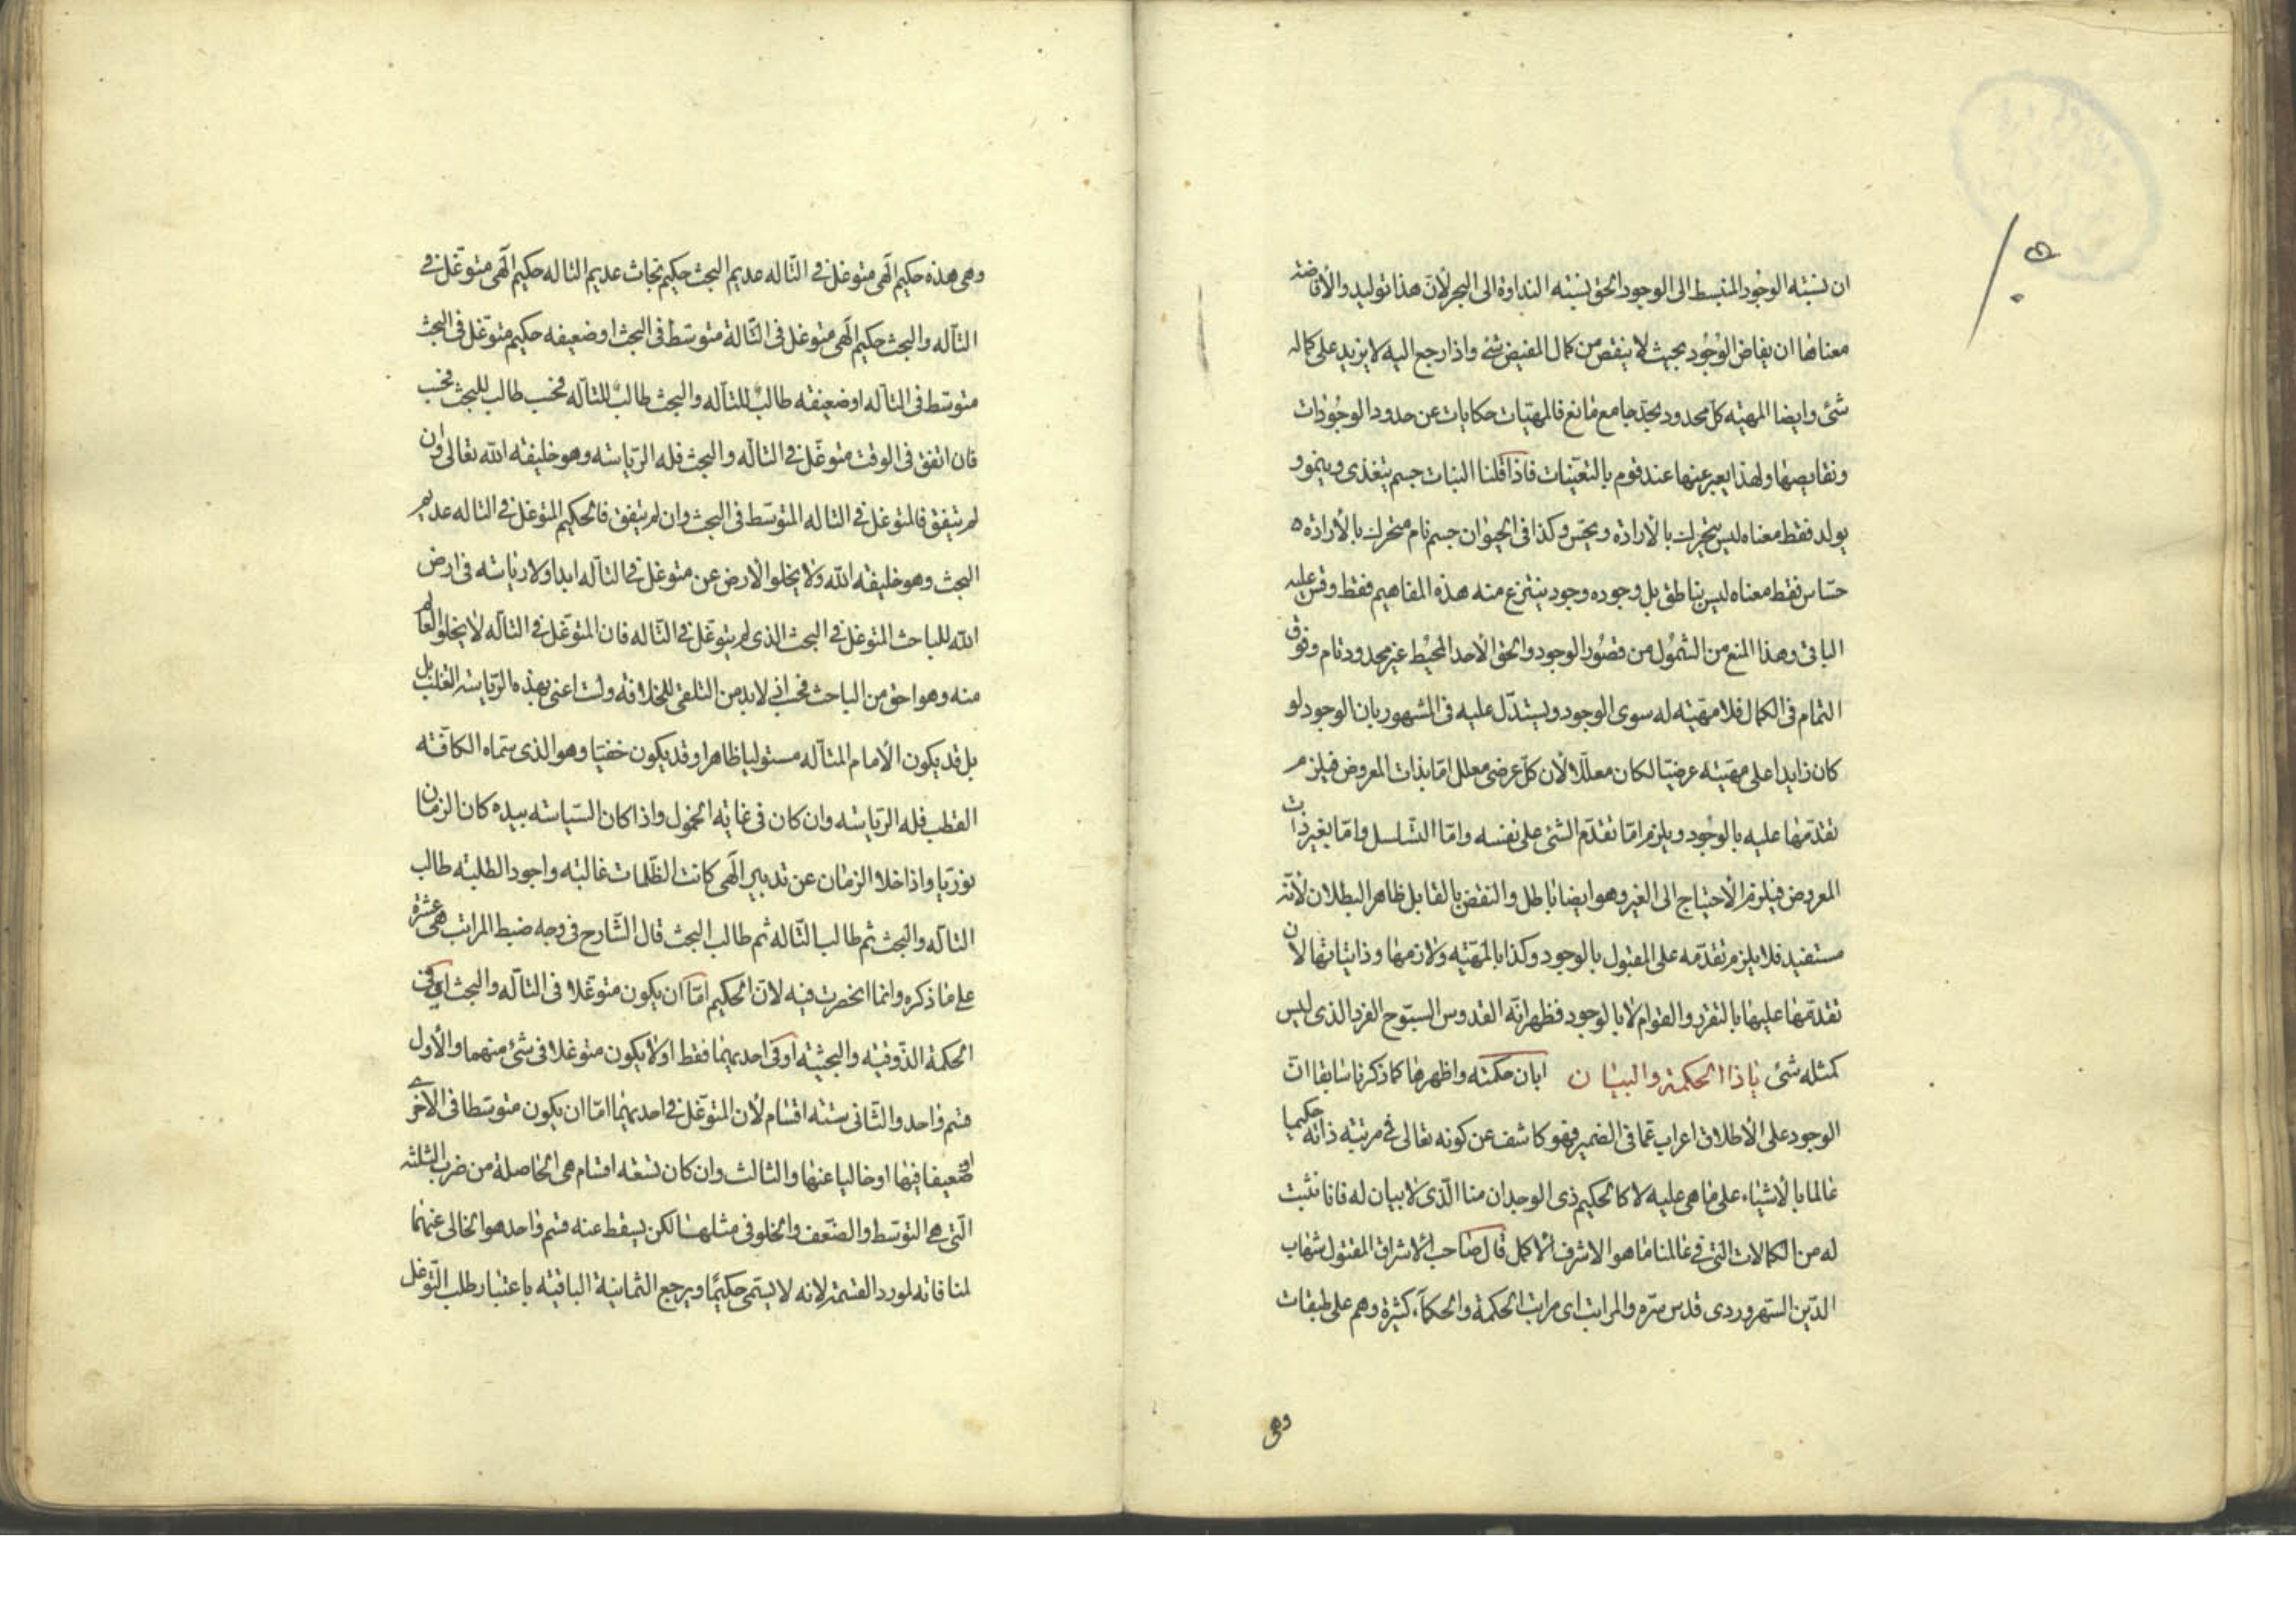 ان نسبته الوجود المنبسط الى الوجود الحق نسبته النداوة الى البحر لان هذا توليد والأفاضه
معناها ان يفاض الوجود بحيث لا ينقص من كمال المفيض شئ واذا رجع اليه لا يزيد على كماله
شئ وايضا المهيته كل محدود بحد جامع مانع فالمهيّات حكايات عن حدود الوجودات
ونقايصها ولهذا يعبر عنها عند قوم بالتعيّنات فاذا قلنا النبات جسم يتغذى وينمو و
يولد فقط معناه ليس بمتحرك بالأرادة ويحس وكذا فى الحيوان جسم نام متحرك بالأرادة
حسّاس فقط معناه ليس بناطق بل وجوده وجود ينتزع منه هذه المفاهيم فقط وقس عليه
الباقى وهذا المنع من الشمول من قصور الوجود والحق الأحد المحيط غير محدود تام وفوق
التمام فى الكمال فلا مهيّته له سوى الوجود ويستدّل عليه فى المشهور بان الوجود لو
كان زايدا على مهيّته عرضيّا لكان معلّلا لأن كلّ عرضى معلل امّا بذات المعروض فيلزم
تقدّمها عليه بالوجود ويلزم امّا تقدّم الشئ على نفسه وامّا التسلسل وامّا بغير ذات
المعروض فيلزم الأحتياج الى الغير وهو ايضا باطل والنقض بالقابل ظاهر البطلان لأنّه
مستفيد فلا يلزم تقدّمه على المقبول بالوجود وكذا بالمهيّته ولازمها وذاتياتها لأن
تقدّمها عليها بالتقرر والقوام لا بالوجود فظهر انّه القدوس السبّوح الفرد الذى ليس
كمثله شئ ياذا الحكمة والبيان ابان حكمته واظهرها كما ذكرنا سابقا انّ
الوجود على الأطلاق اعراب عمّا فى الضمير فهو كاشف عن كونه تعالى فى مرتبته ذاته حكيما
عالما بالأشياء على ما هى عليه لا كالحكيم ذى الوجدان منا الّذى لا بيان له فانا نثبت
له من الكمالات التى فى عالمنا ما هو الاشرف الاكمل قال صاحب الاشراق المقتول شهاب
الدّين السهروردى قدس سرّه والمراتب اى مراتب الحكمة والحكمآء كثيرة وهم على طبقات
وهى
وهى هذه حكيم الهى متوغل فى التّاله عديم البحث حكيم بحاث عديم التاله حكيم الهى متوغّل فى
التآله والبحث حكيم الهى متوغل فى التّالة متوسّط فى البحث او ضعيفه حكيم متوغّل فى البحث
متوسّط فى التآله او ضعيفه طالب للتآله والبحث طالب للتآله فحسب طالب للبحث فحسب
فان اتفق فى الوقت متوغّل فى التآله والبحث فله الرّياسته وهو خليفته الله تعالى وان
لم يتفق فالمتوغل فى التاله المتوسّط فى البحث وان لم يتفق فالحكيم المتوغل فى التاله عديم
البحث وهو خليفته الله ولا يخلو الأرض عن متوغل فى التآله ابدا ولا رياسته فى ارض
الله للباحث المتوغل فى البحث الذى لم يتوغّل فى التّاله فان المتوغّل فى التآله لا يخلو العالم
منه وهو احق من الباحث فحسب اذ لا بد من التلقى للخلافته ولست اعنى بهذه الرّياسته التغلب بل
بل قد يكون الأمام المتآله مستوليا ظاهرا وقد يكون خفيّا وهو الذى سمّاه الكافّته
القطب فله الرّياسته وان كان فى غايته الخمول واذا كان السّياسته بيده كان الزمان
نوريّا واذا خلا الزمان عن تدبير الهى كانت الظّلمات غالبته واجود الطلبته طالب
التآله والبحث ثم طالب التّاله ثم طالب البحث قال الشّارح فى وجه ضبط المراتب هى عشرة
على ما ذكره وانما انحصرت فيه لانّ الحكيم امّا ان يكون متوغّلا فى التآله والبحث اى فى
الحكمة الذّوقيته والبحثيته او فى احديهما فقط اولا يكون متوغلا فى شئ منهما والأول
قسم واحد والثّانى ستته اقسام لأن المتوغّل فى احديهما امّا ان يكون متوسّطا فى الأخرى
او ضعيفا فيها او خاليا عنها والثالث وان كان تسعه اقسام هى الحاصلة من ضرب الثلثه
الّتى هى التوسّط والضّعف والخلو فى مثلها لكن يسقط عنه قسم واحد هو الخالى عنهما
لمنافاته لمورد القسمة لانه لا يسمّى حكيمًا ويرجع الثمانية الباقيته باعتبار طلب التّوغل